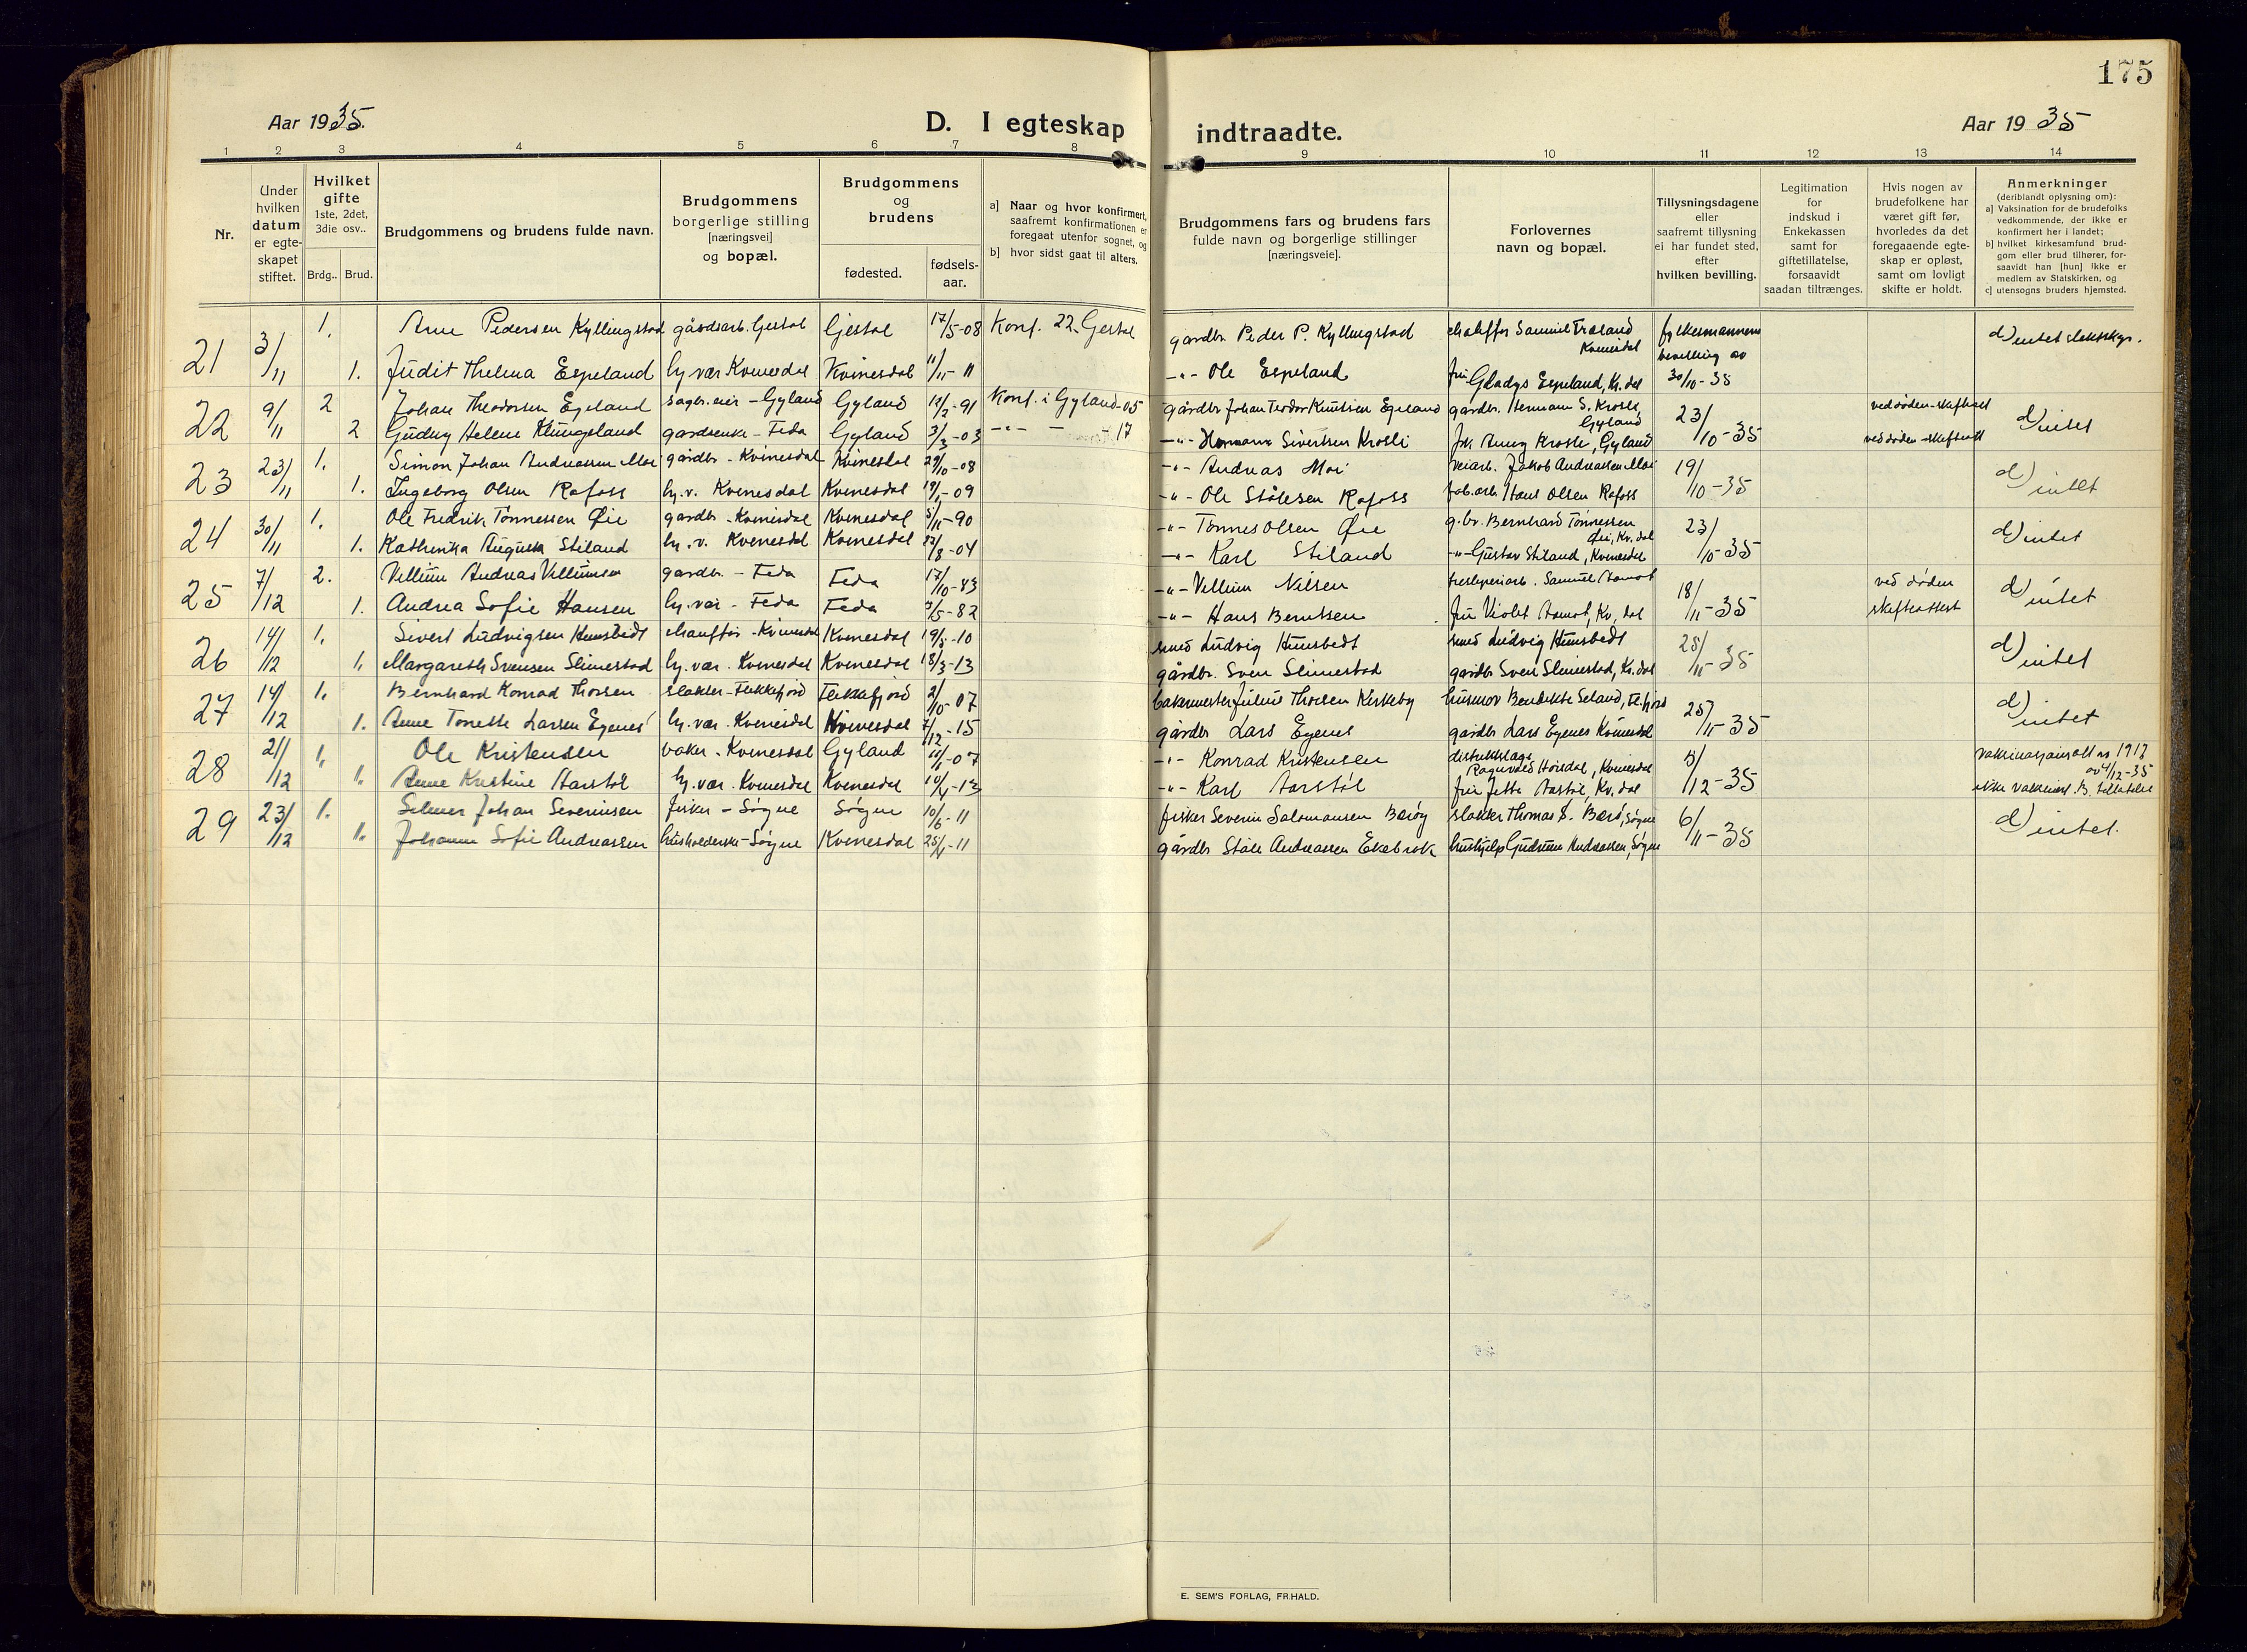 175
Aar 1935.
D. I egteskap indtraadte.
Aar 1935
1 2 3 4 5 6 7 8 9 10 11 12 13 14
Nr.
Under hvilken datum er egteskapet stiftet.
Hvilket gifte 1ste, 2det, 3die osv..
Brdg.. Brud.
Brudgommens og brudens fulde navn.
Brudgommens borgerlige stilling [næringsvei] og bopæl.
Brudgommens og brudens
fødested.
fødsels-aar.
a] Naar og hvor konfirmert, saafremt konfirmationen er foregaat utenfor sognet, og
b] hvor sidst gaat til alters.
Brudgommens fars og brudens fars fulde navn og borgerlige stillinger [næringsveie].
Forlovernes navn og bopæl.
Tillysningsdagene eller saafremt tillysning ei har fundet sted, efter hvilken bevilling.
Legitimation for indskud i Enkekassen samt for giftetillatelse, forsaavidt saadan tiltrænges.
Hvis nogen av brudefolkene har været gift før, hvorledes da det foregaaende egteskap er opløst, samt om lovligt skifte er holdt.
Anmerkninger (deriblandt oplysning om):
a] Vaksination for de brudefolks vedkommende, der ikke er konfirmert her i landet;
b] hvilket kirkesamfund brudgom eller brud tilhører, forsaavidt han [hun] ikke er medlem av Statskirken, og
c] utensogns bruders hjemsted.
21 3/11 1. Arne Pedersen Kyllingstad gårdsarb. Gjestal Gjestal 17/5-08 Konf. 22 Gjestal gårdbr. Peder P. Kyllingstad chauffør Samuel Træland Kvinesdal fylkesmannens d) intet slektskap.
1. Judit Thelma Espeland hj. vær Kvinesdal Kvinesdal 11/11-11 -"- Ole Espeland fru Gladys Espeland, Kv.dal bevilling av 30/10-35
22 9/11 2 Johan Theodorsen Egeland sagbr.eier - Gyland Gyland 12/2-91 Konf. i Gyland-05 gårdbr Johan Teodor Knutsen Egeland gårdbr. Hermann S. Krosli, Gyland 23/10-35 ved døden-skifteatt d) intet
2 Gudny Helene Klungeland gardsenke - Feda Gyland 3/3-03 -"- - -17 -"- Hermann Sivertsen Krosli frk Anny Krosli, Gyland ved døden-skifteatt
23 23/11 1. Simon Johan Andreassen Moi gårdbr - Kvinesdal Kvinesdal 29/10-08 -"- Andreas Moi veiarb. Jakob Andreassen Moi 19/10-35 d) intet
1. Ingeborg Olsen Rafoss hj. v. Kvinesdal Kvinesdal 19/1-09 -"- Ole Stålesen Rafoss fab.arb. Hans Olsen Rafoss
24 30/11 1. Ole Fredrik Tønnessen Øie gardbr - Kvinesdal Kvinesdal 5/11-90 -"- Tønnes Olsen Øie g.br. Bernhard Tønnessen Øie, Kv.dal 23/10-35 d) intet
1. Kathinka Augusta Stiland hj. v. Kvinesdal Kvinesdal 22/8-04 -"- Karl Stiland -"- Gustav Stiland, Kvinesdal
25 7/12 2. Vellum Andreas Vellumsen gardbr. - Feda Feda 17/10-83 -"- Vellum Nilsen Samuel Aamot 18/11-35 ved døden d) intet
1. Andrea Sofie Hansen hj. vær - Feda Feda 3/5-82 -"- Hans Berntsen fru Violet Aamot, Kv.dal skifteattest
26 14/12 1. Sivert Ludvigsen Hunsbedt chauffør - Kvinesdal Kvinesdal 19/8-10 smed Ludvig Hunsbedt smed Ludvig Hunsbedt 25/11-35 d) intet
1. Margareth Svensen Slimestad hj. vær. Kvinesdal Kvinesdal 18/3-13 gårdbr. Sven Slimestad gardbr Sven Slimestad, Kv.dal
27 14/12 1. Bernhard Konrad Thorsen slakter - Flekkefjord Flekkefjord 2/10-07 bakermester Julius Thorsen Kirkeby husmor Bendikte Seland, Fl.fjord 25/11-35 d) intet
1. Anne Tonette Larsen Egenes hj. vær. Kvinesdal Kvinesdal 7/12-15 gårdbr Lars Egenes gardbr Lars Egenes Kvinesdal
28 21/12 1. Ole Kristensen baker - Kvinesdal Gyland 11/1-07 -"- Konrad Kristensen distriktslæge Ragnvald Horsdal, Kvinesdal 5/12-35 av 4/12-35
1. Anne Kristine Aarstøl hj. vær. Kvinesdal Kvinesdal 10/4-13 -"- Karl Aarstøl fru Jette Aastøl, Kv.dal ikke
29 23/12 1. Selmer Johan Severinsen fisker - Søgne Søgne 10/6-11 fisker Severin Salomonsen Borøy slakter Thomas S. Borø, Søgne 6/11-35 d) intet.
1. Johanne Sofie Andreassen husholderske - Søgne Kvinesdal 25/4-11 gårdbr Ståle Andreassen Ekebrok hushjelp Gudrun Andreassen, Søgne
E. SEM'S FORLAG, FR.HALD.